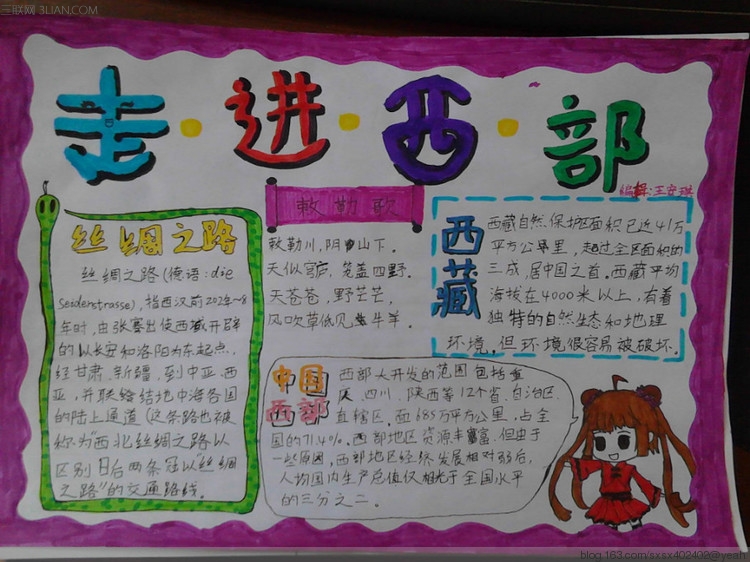 三联网 3LIAN.COM
走·进·西·部
编辑:王安琪
丝绸之路
丝绸之路(德语:die
Seidenstrasse),指西汉前202年~8
年时,由张骞出使西域开辟
的以长安和洛阳为东起点,
经甘肃、新疆,到中亚、西
亚,并联络结地中海各国
的陆上通道(这条路也被
称为“西北丝绸之路以
区别日后两条冠以丝绸
之路”的交通路线。
敕勒歌
敕勒川,阴山下。
天似宫庐,笼盖四野.
天苍苍,野芒芒,
风吹草低见牛羊。
西藏
西藏自然保护区面积已近41万
平方公里,超过全区面积的
三成,居中国之首。西藏平均
海拔在4000米以上,有着
独特的自然生态和地理
环境,但环境很容易被破坏.
中国
西部
西部大开发的范围包括重
庆、四川、陕西等12个省、自治区、
直辖区。面685万平方公里,占全
国的71.4%。西部地区资源丰富,但由于
一些原因,西部地区经济发展相对弱后,
人均国内生产总值仅相当于全国水平
的三分之二。
blog.163.com/sxsx402402@yeah